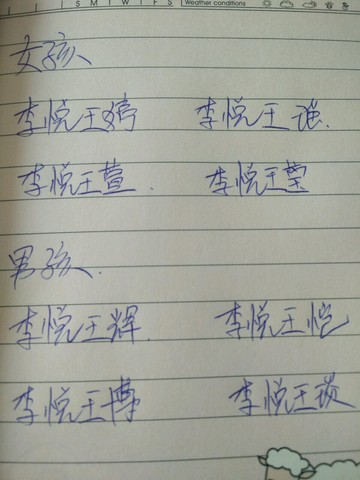 S M T W T F S Weather conditions
女孩
李悦王婷 李悦王
李悦王萱. 李悦王莹
男孩.
李悦王辉. 李悦王恺
李悦王博 李悦王